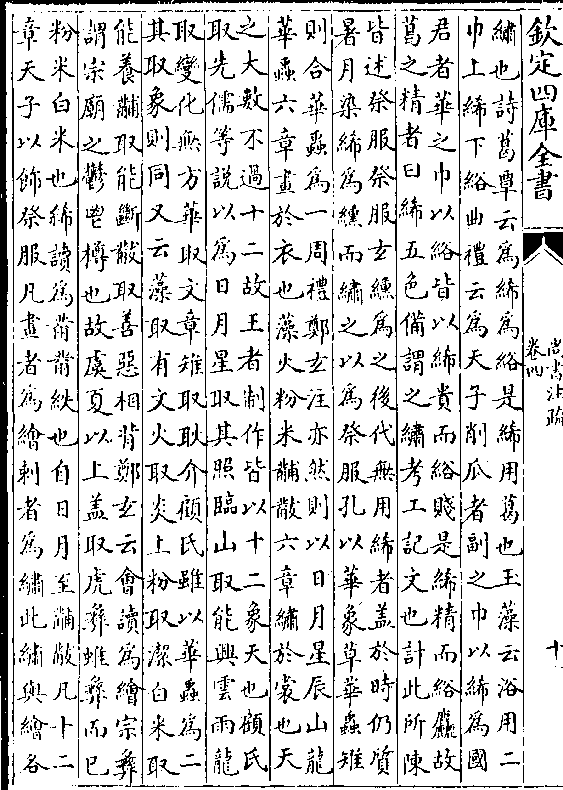 欽定四庫全書
尚書注疏
卷四
十
繡也詩葛覃云為絺為綌是絺用葛也玉藻云浴用二
巾上絺下綌曲禮云為天子削瓜者副之巾以絺為國
君者華之巾以綌皆以絺貴而綌賤是絺精而綌麤故
葛之精者曰絺五色備謂之繡考工記文也計此所陳
皆述祭服祭服玄纁為之後代無用絺者蓋於時仍質
暑月染絺為纁而繡之以為祭服孔以華象草華蟲雉
則合華蟲為一周禮鄭玄注亦然則以日月星辰山龍
華蟲六章畫於衣也藻火粉米黼黻六章繡於裳也天
之大數不過十二故王者制作皆以十二象天也顧氏
取先儒等說以為日月星取其照臨山取能興雲雨龍
取變化無方華取文章雉取耿介顧氏雖以華蟲為二
其取象則同又云藻取有文火取炎上粉取潔白米取
能養黼取能斷黻取善惡相背鄭玄云會讀為繪宗彝
謂宗廟之鬱鬯樽也故虞夏以上蓋取虎彝蜼彝而已
粉米白米也絺讀為黹黹紩也自日月至黼黻凡十二
章天子以飾祭服凡畫者為繪刺者為繡此繡與繪各